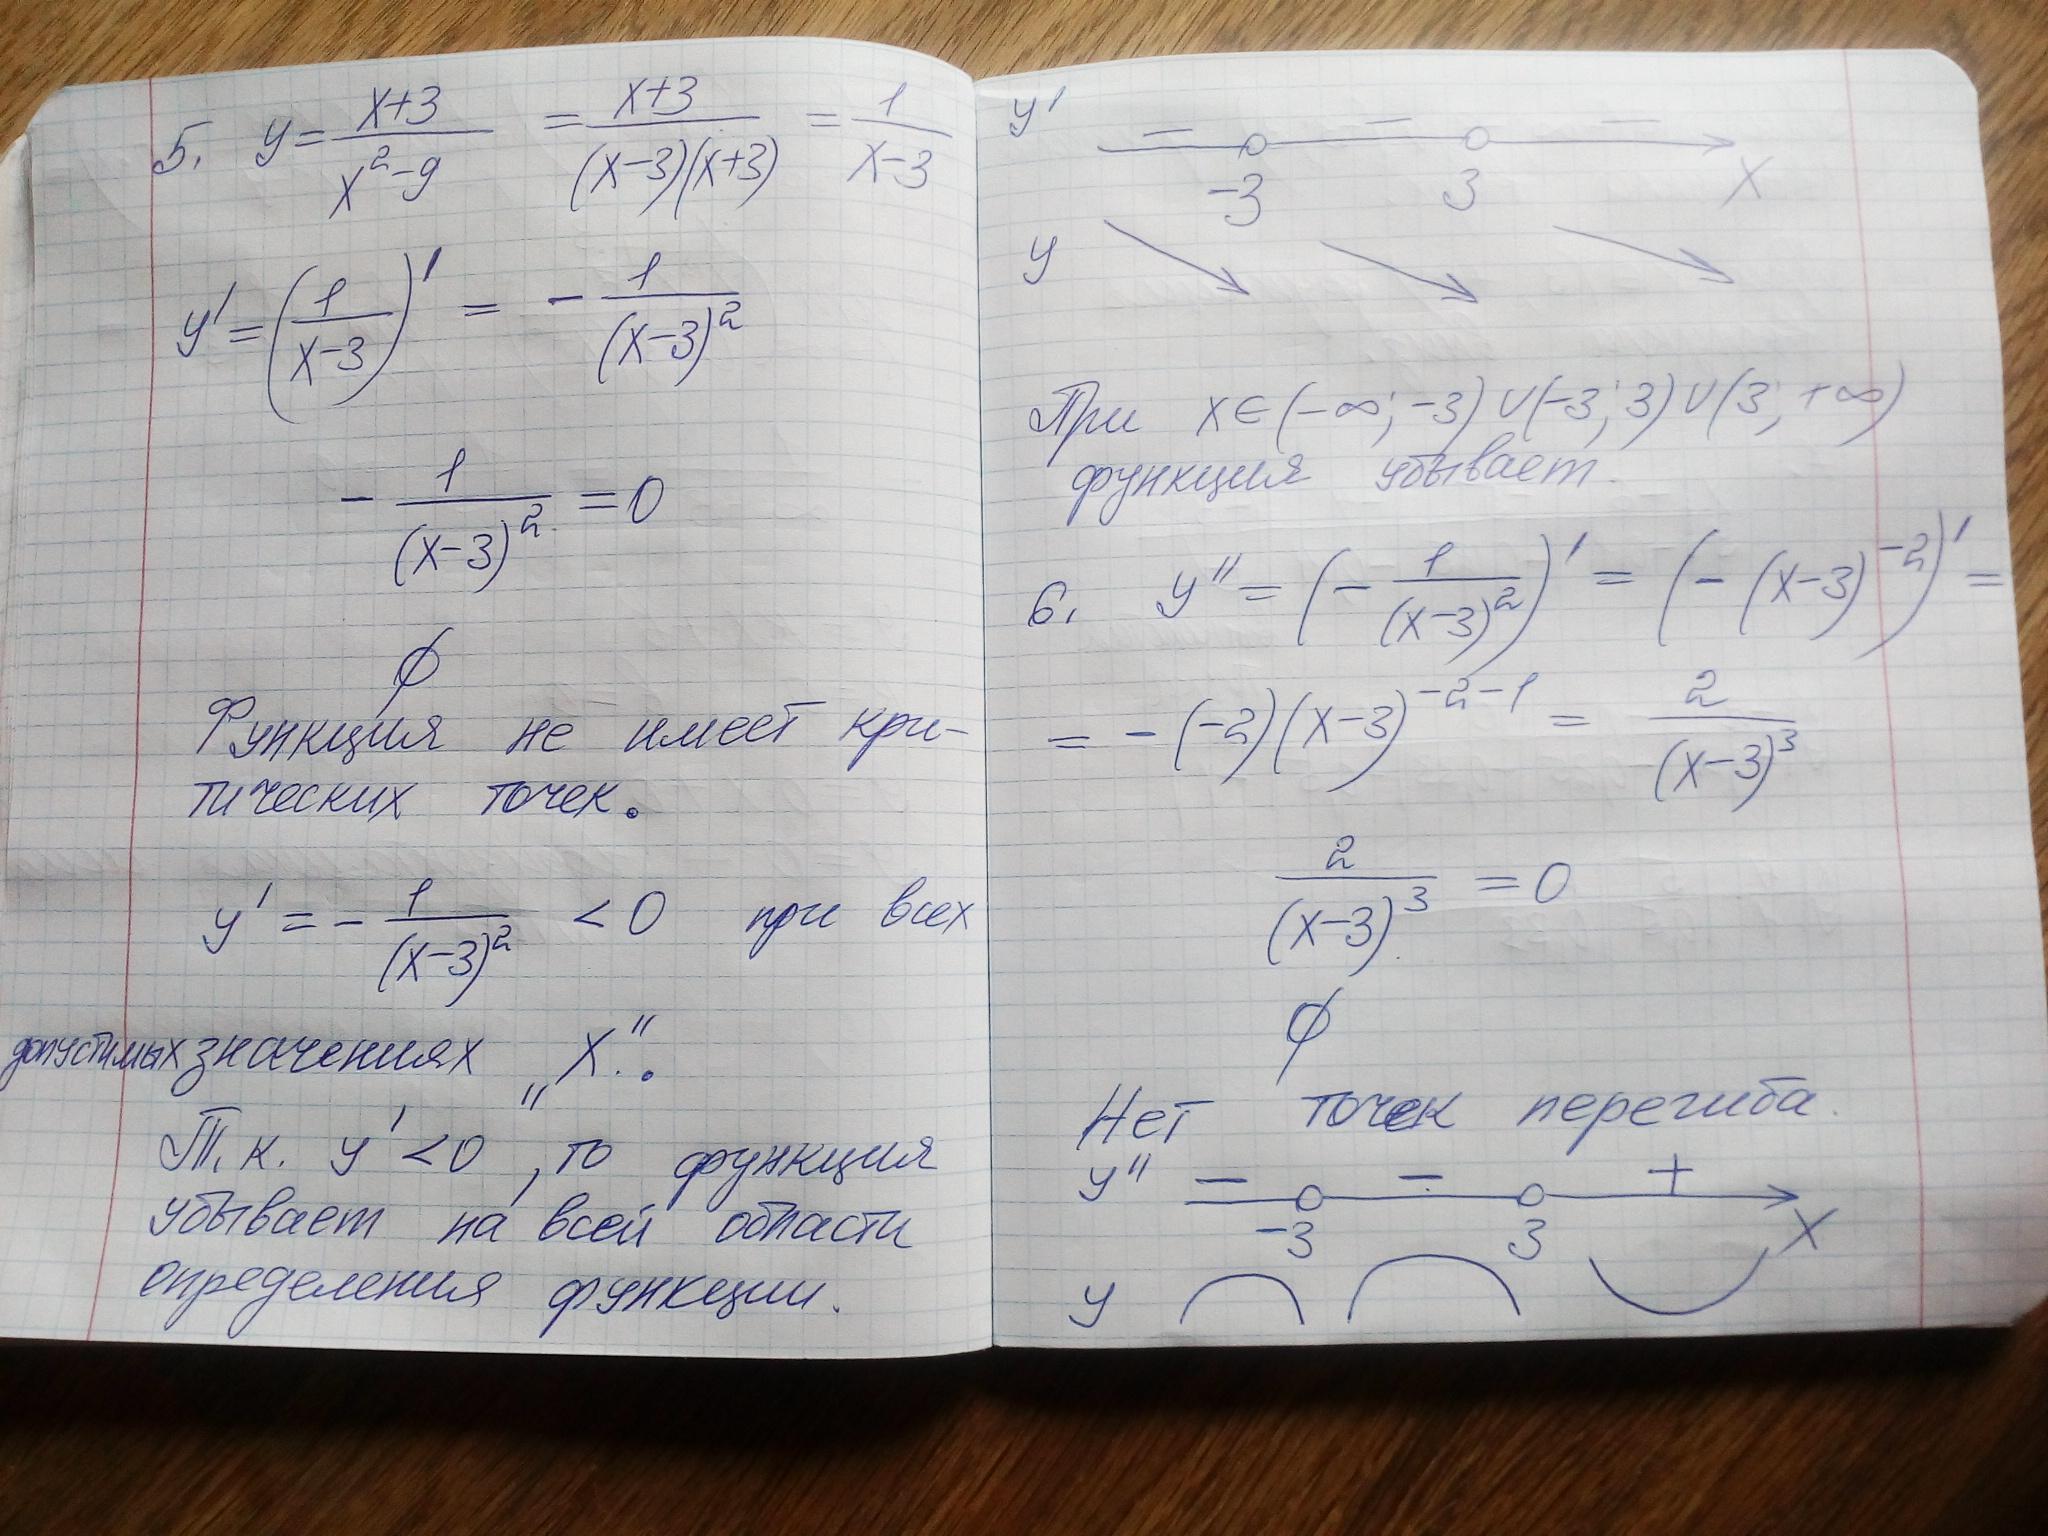 5. y = (x+3)/(x²-9) = (x+3)/((x-3)(x+3)) = 1/(x-3)
y' = (1/(x-3))' = - 1/(x-3)²
- 1/(x-3)² = 0
∅
Функция не имеет кри-
тических точек.
y' = - 1/(x-3)² < 0 при всех
допустимых значениях „x".
Т.к. y' < 0, то функция
убывает на всей области
определения функции.
y' - - -
-3 3 x
y
При x∈(-∞; -3)∪(-3; 3)∪(3; +∞)
функция убывает.
6. y'' = (- 1/(x-3)²)' = (- (x-3)⁻²)' =
= - (-2)(x-3)⁻²⁻¹ = 2/(x-3)³
2/(x-3)³ = 0
∅
Нет точек перегиба.
y'' - - +
-3 3 x
y